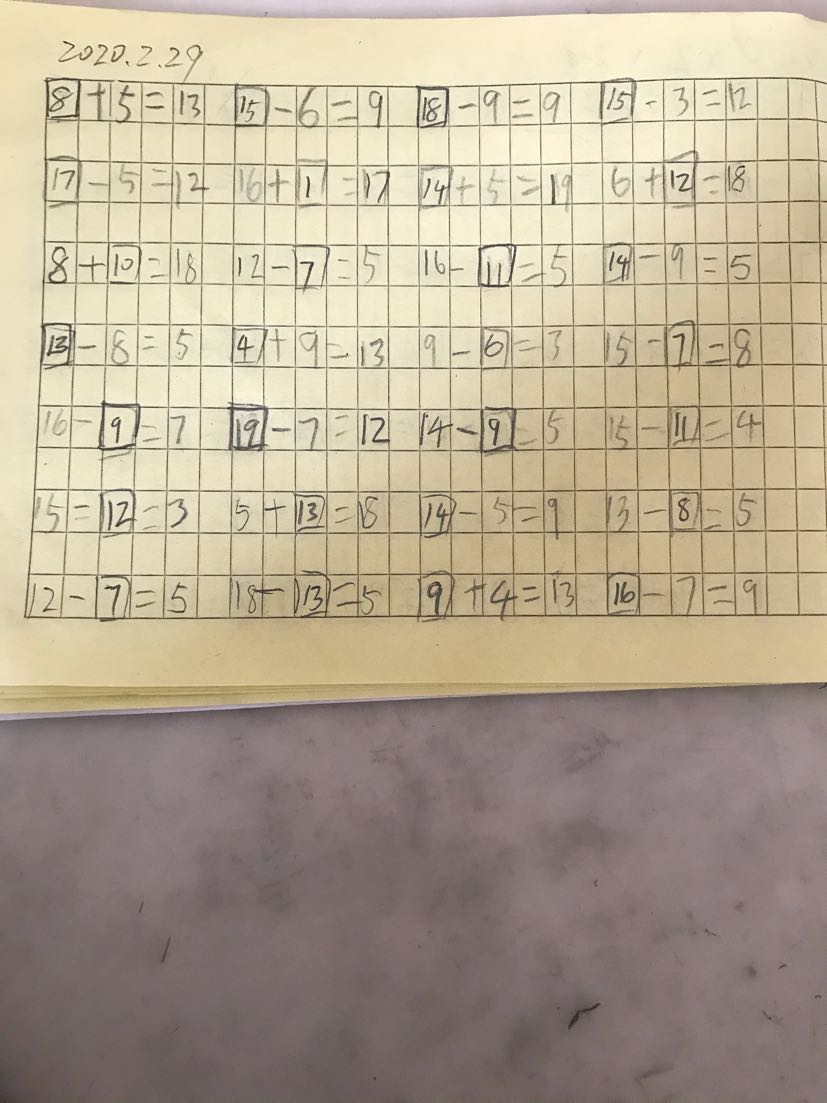 2020.2.29
8+5=13 15-6=9 18-9=9 15-3=12
17-5=12 16+1=17 14+5=19 6+12=18
8+10=18 12-7=5 16-11=5 14-9=5
13-8=5 4+9=13 9-6=3 15-7=8
16-9=7 19-7=12 14-9=5 15-11=4
15=12=3 5+13=18 14-5=9 13-8=5
12-7=5 18-13=5 9+4=13 16-7=9